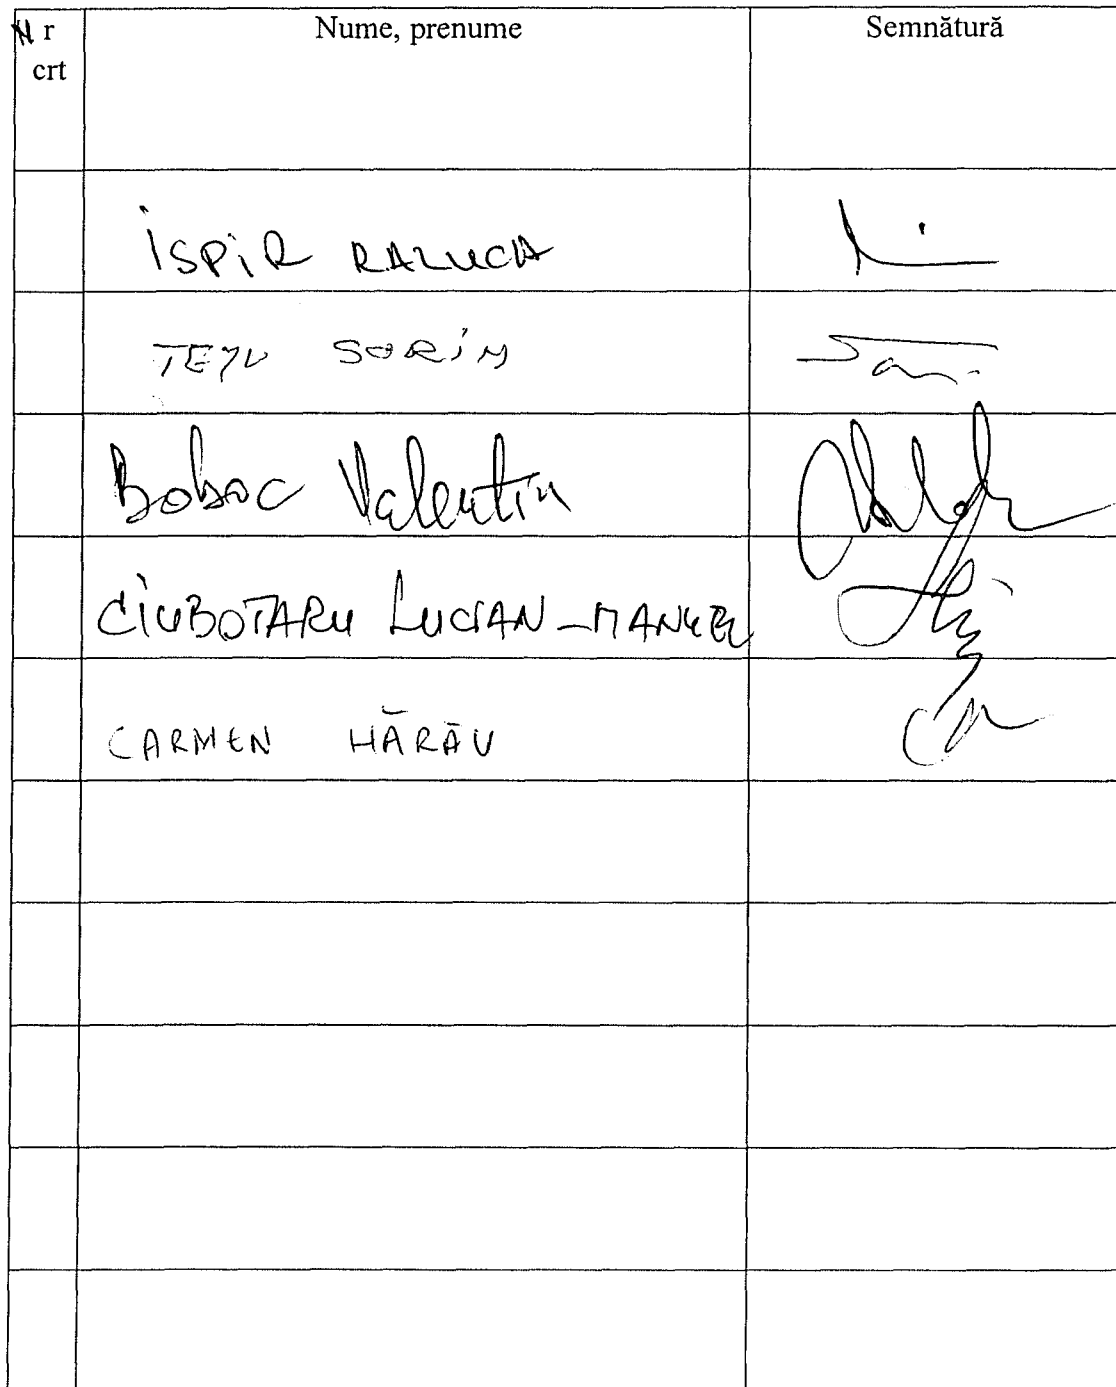 Nr Nume, prenume Semnătură
crt
ISPIR RALUCA
SORIN
Boboc Valentin
CIUBOTARU LUCIAN-MANUEL
CARMEN HĂRĂU